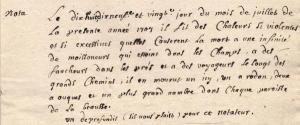 Nota
Le dixhuict dixneufe et vingte jour du mois de juillet de
La presente année 1707 il fit des Chaleurs si violentes
et si excessives quelles Causerent La mort a une infinité
de moissoneurs qui estoient dans les Champs, a des
faucheurs dans les prés et a des voyageurs Le long des
grands Chemins, il en mourut un icy, un a rodon, deux
a auques et un plus grand nombre dans Chaque paroisse
de La
un deprofundis (sil vous plaist) pour ce notateur.